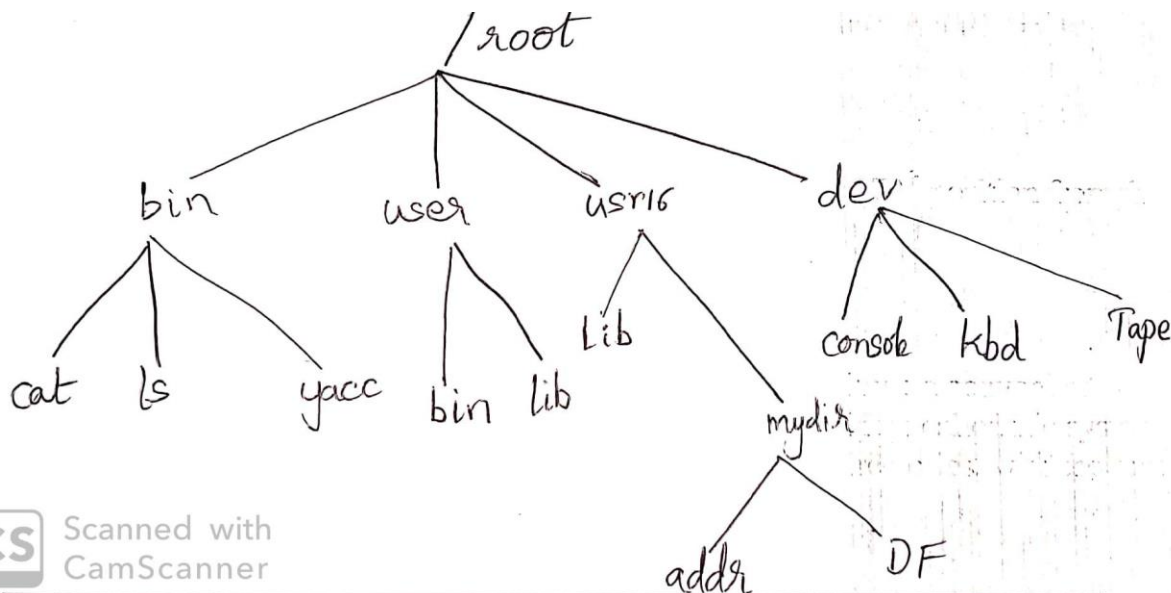 /root
bin user usr16 dev
cat ls yacc bin lib Lib mydir console kbd Tape
addr DF
CS Scanned with
CamScanner